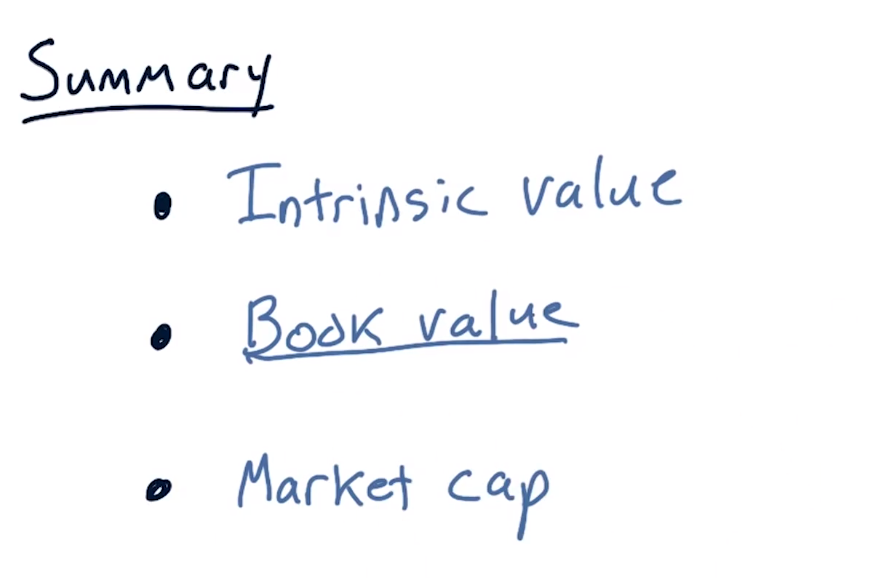 Summary
• Intrinsic value
• Book value
• Market cap